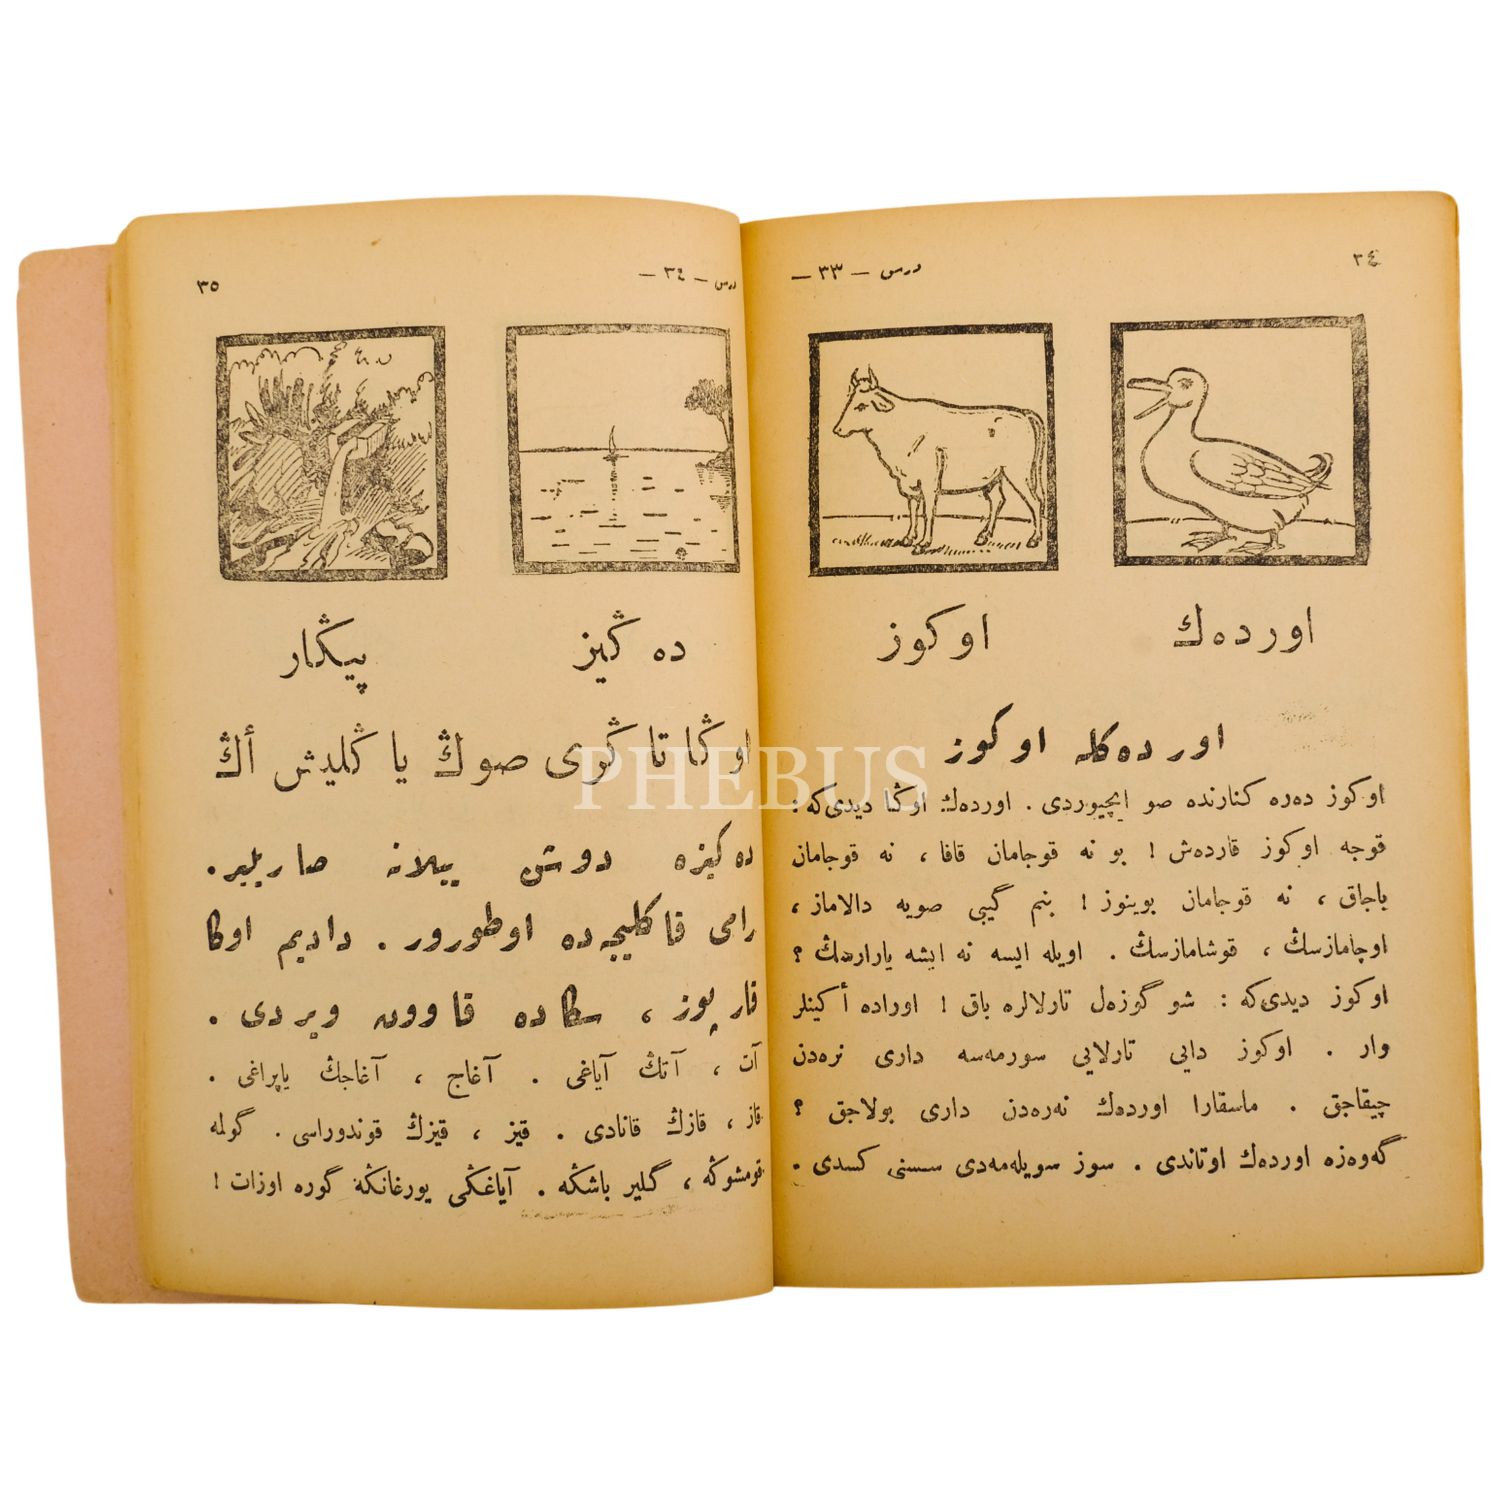 ٣٤
درس — ٣٣ —
اورده‌ك
اوكوز
اورده‌كله اوكوز
اوكوز ده‌ره كنارنده صو ایچیوردی . اورده‌ك اوڭا دیدی‌كه :
قوجه اوكوز قارده‌ش ! بو نه قوجامان قافا ، نه قوجامان
باجاق ، نه قوجامان بوینوز ! بنم گیبی صویه دالاماز ،
اوچامازسڭ ، قوشامازسڭ . اویله ایسه نه ایشه یارارسڭ ؟
اوكوز دیدی‌كه : شو گوزه‌ل تارلالره باق ! اوراده أكینلر
وار . اوكوز دایی تارلایی سورمه‌سه داری نره‌دن
چیقاجق . ماسقارا اورده‌ك نه‌ره‌دن داری بولاجق ؟
گه‌وه‌زه اورده‌ك اوتاندی . سوز سویله‌مه‌دی سسنی كسدی .
درس — ٣٤ —
٣٥
ده‌ڭیز
پیڭار
اوڭا تاڭری صوڭ یاڭلیش أڭ
ده‌كیزه دوشن ییلانه صاریلیر .
رامی قاكلیجه‌ده اوطورور . دادیم اوكا
قارپوز ، سكاده قاوون ویردی .
آت ، آتڭ آیاغی . آغاج ، آغاجڭ یاپراغی .
قاز ، قازڭ قانادی . قیز ، قیزڭ قوندوراسی . گولمه
قومشوڭه ، گلیر باشڭه . آیاغڭی یورغانڭه گوره اوزات !
PHEBUS